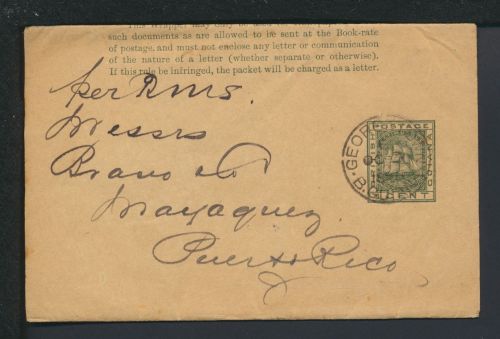 This Wrapper may only be used
such documents as are allowed to be sent at the Book-rate
of postage, and must not enclose any letter or communication
of the nature of a letter (whether separate or otherwise).
If this rule be infringed, the packet will be charged as a letter.
per RMS.
Messrs
Bravo & Co
Mayaguez
Puerto Rico
POSTAGE
GEOR
B.G.
CENT